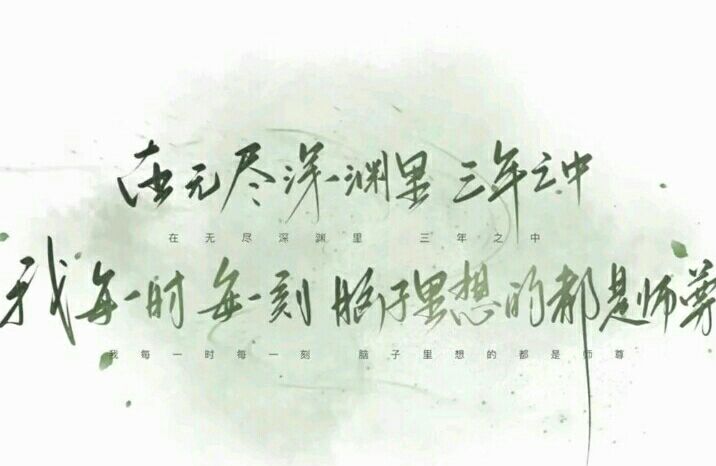 在无尽深渊里 三年之中
在无尽深渊里 三年之中
我每一时每一刻 脑子里想的都是师尊
我每一时每一刻 脑子里想的都是师尊